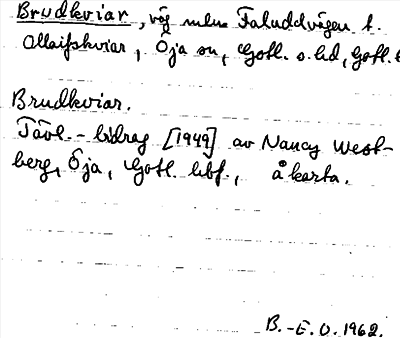 Brudkviar, väg mlm Faluddvägen t.
Allaifskviar, Öja sn, Gotl. s. hd, Gotl. l
Brudkviar.
Tävl.-bidrag [1949] av Nancy West-
berg, Öja, Gotl. hbf., å karta.
B.-E. O. 1962.